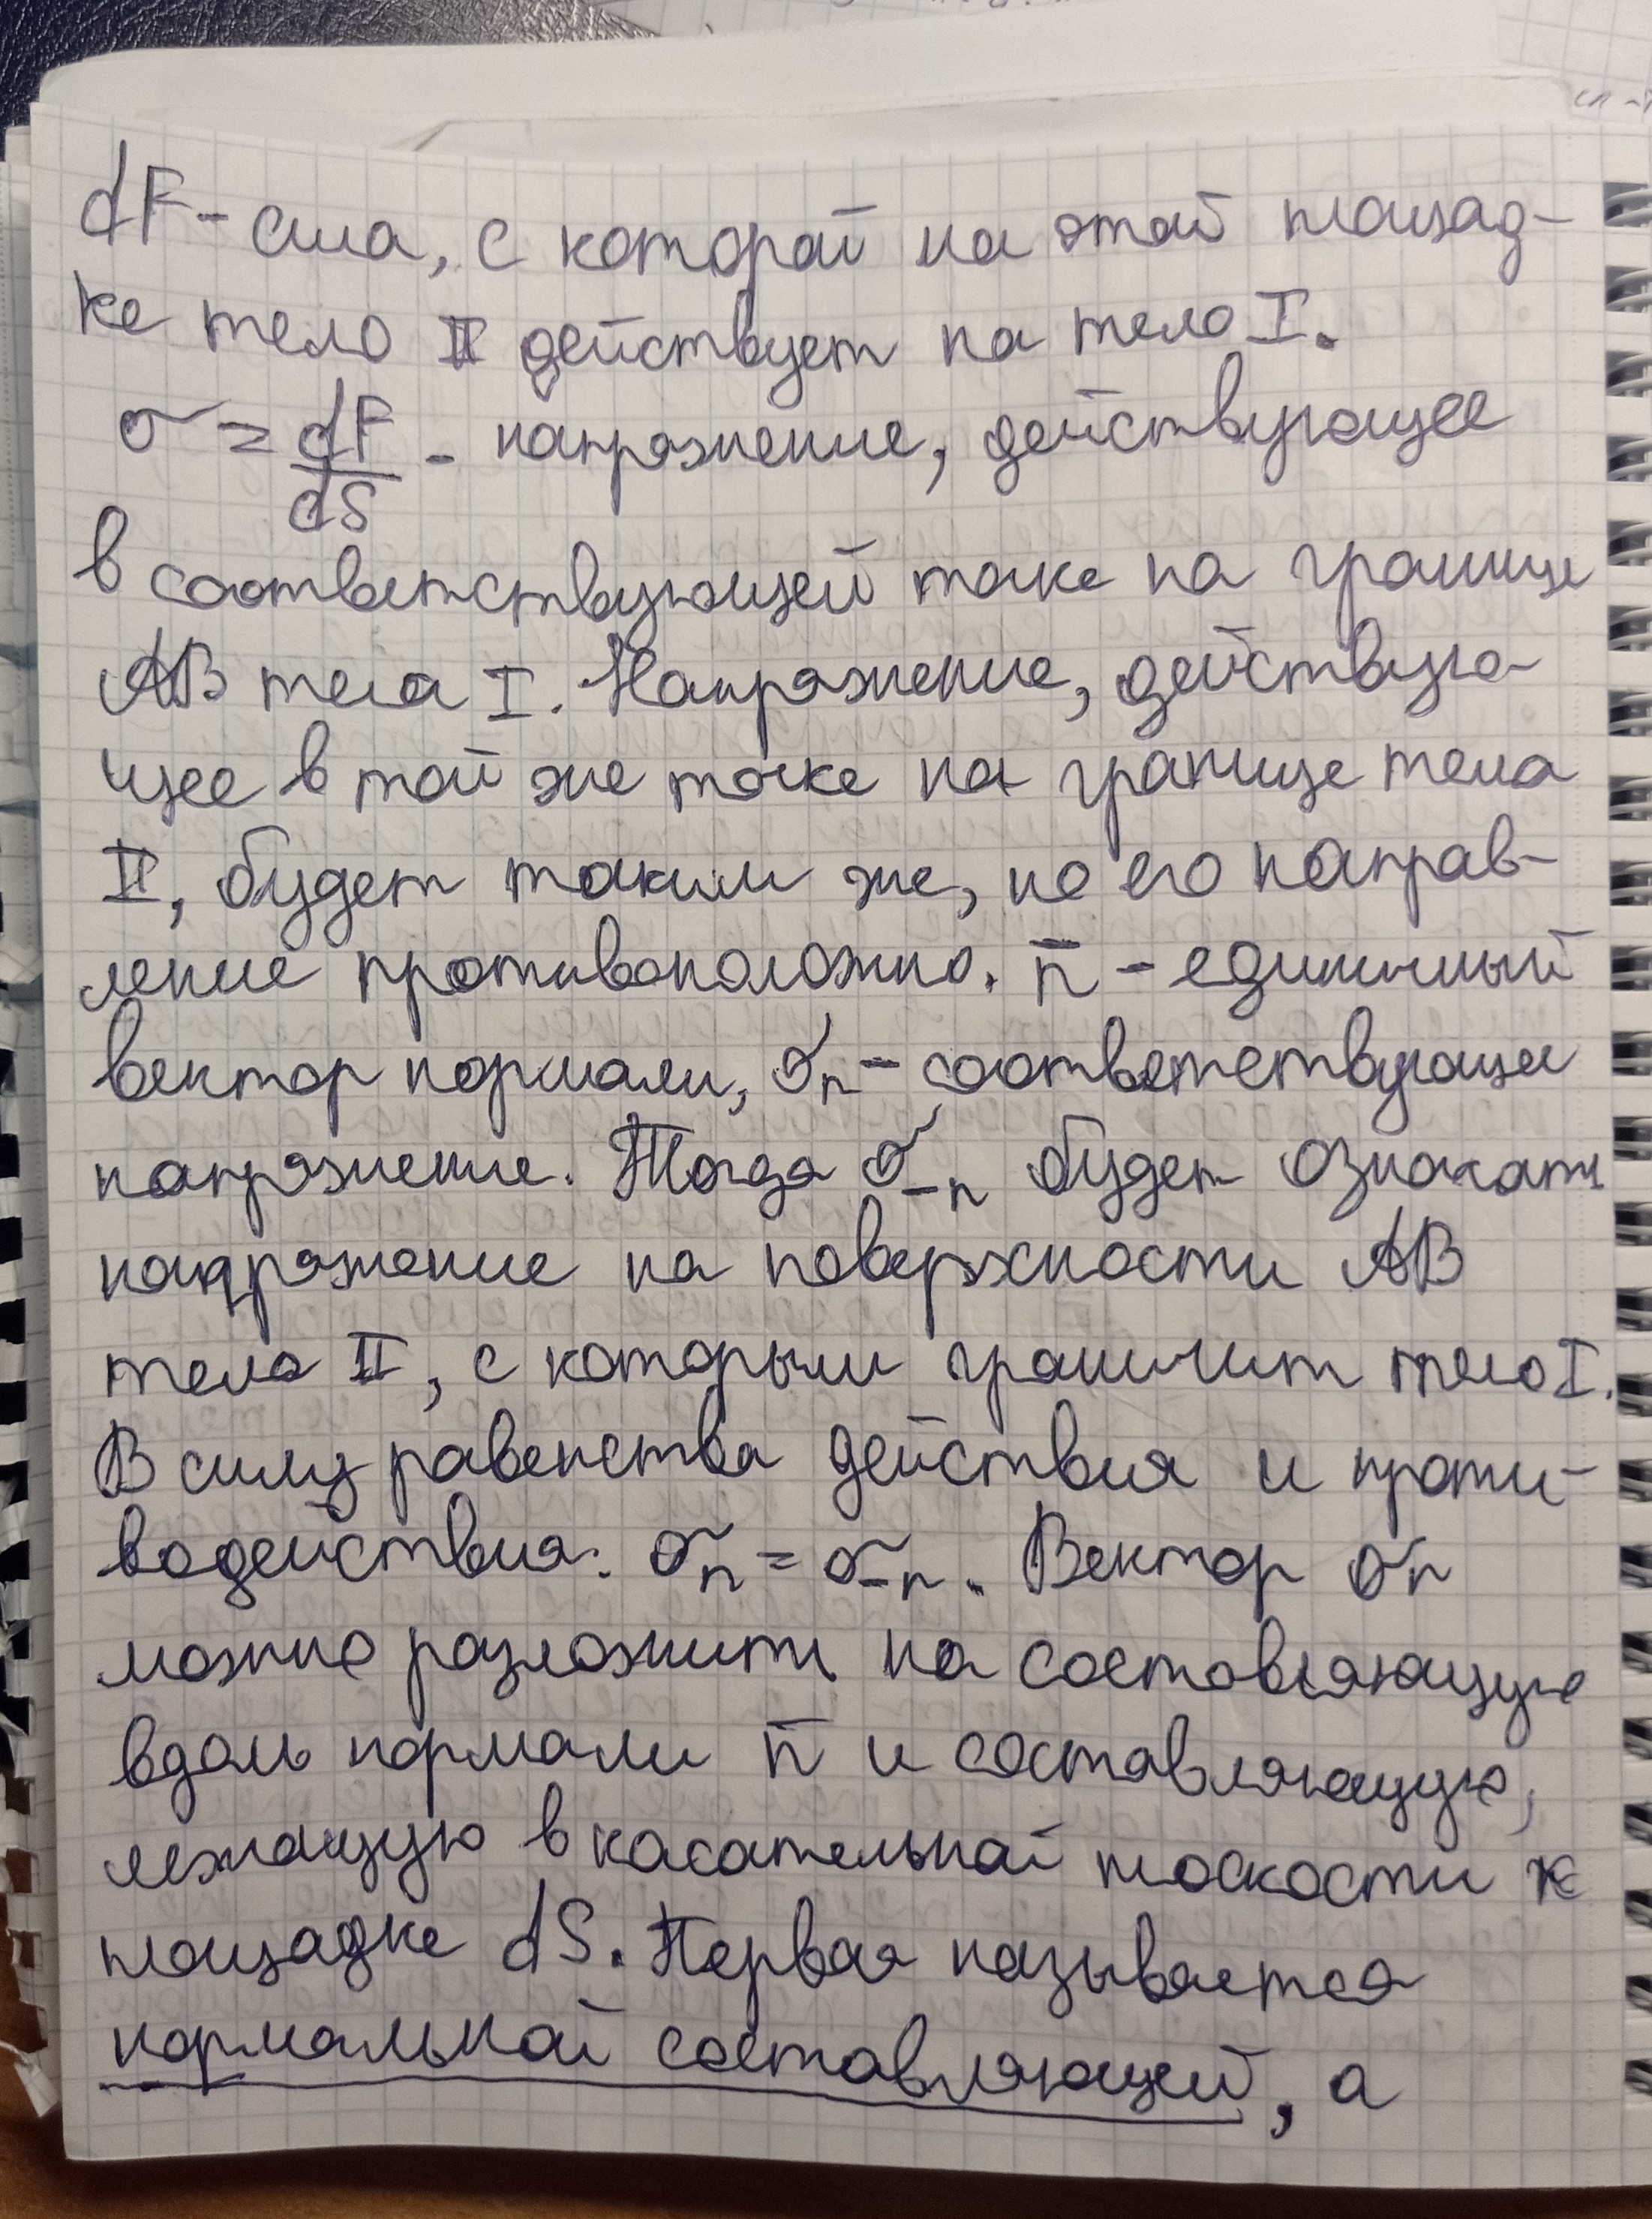 dF - сила, с которой на этой площад-
ке тело II действует на тело I.
σ = dF/dS - напряжение, действующее
в соответствующей точке на границе
AB тела I. Напряжение, действую-
щее в той же точке на границе тела
II, будет таким же, но его направ-
ление противоположно. n̄ - единичный
вектор нормали, σₙ - соответствующее
напряжение. Тогда σ₋ₙ будет означать
напряжение на поверхности AB
тела II, с которым граничит тело I.
В силу равенства действия и проти-
водействия: σₙ = σ₋ₙ. Вектор σₙ
можно разложить на составляющую
вдоль нормали n̄ и составляющую,
лежащую в касательной плоскости к
площадке dS. Первая называется
нормальной составляющей, а